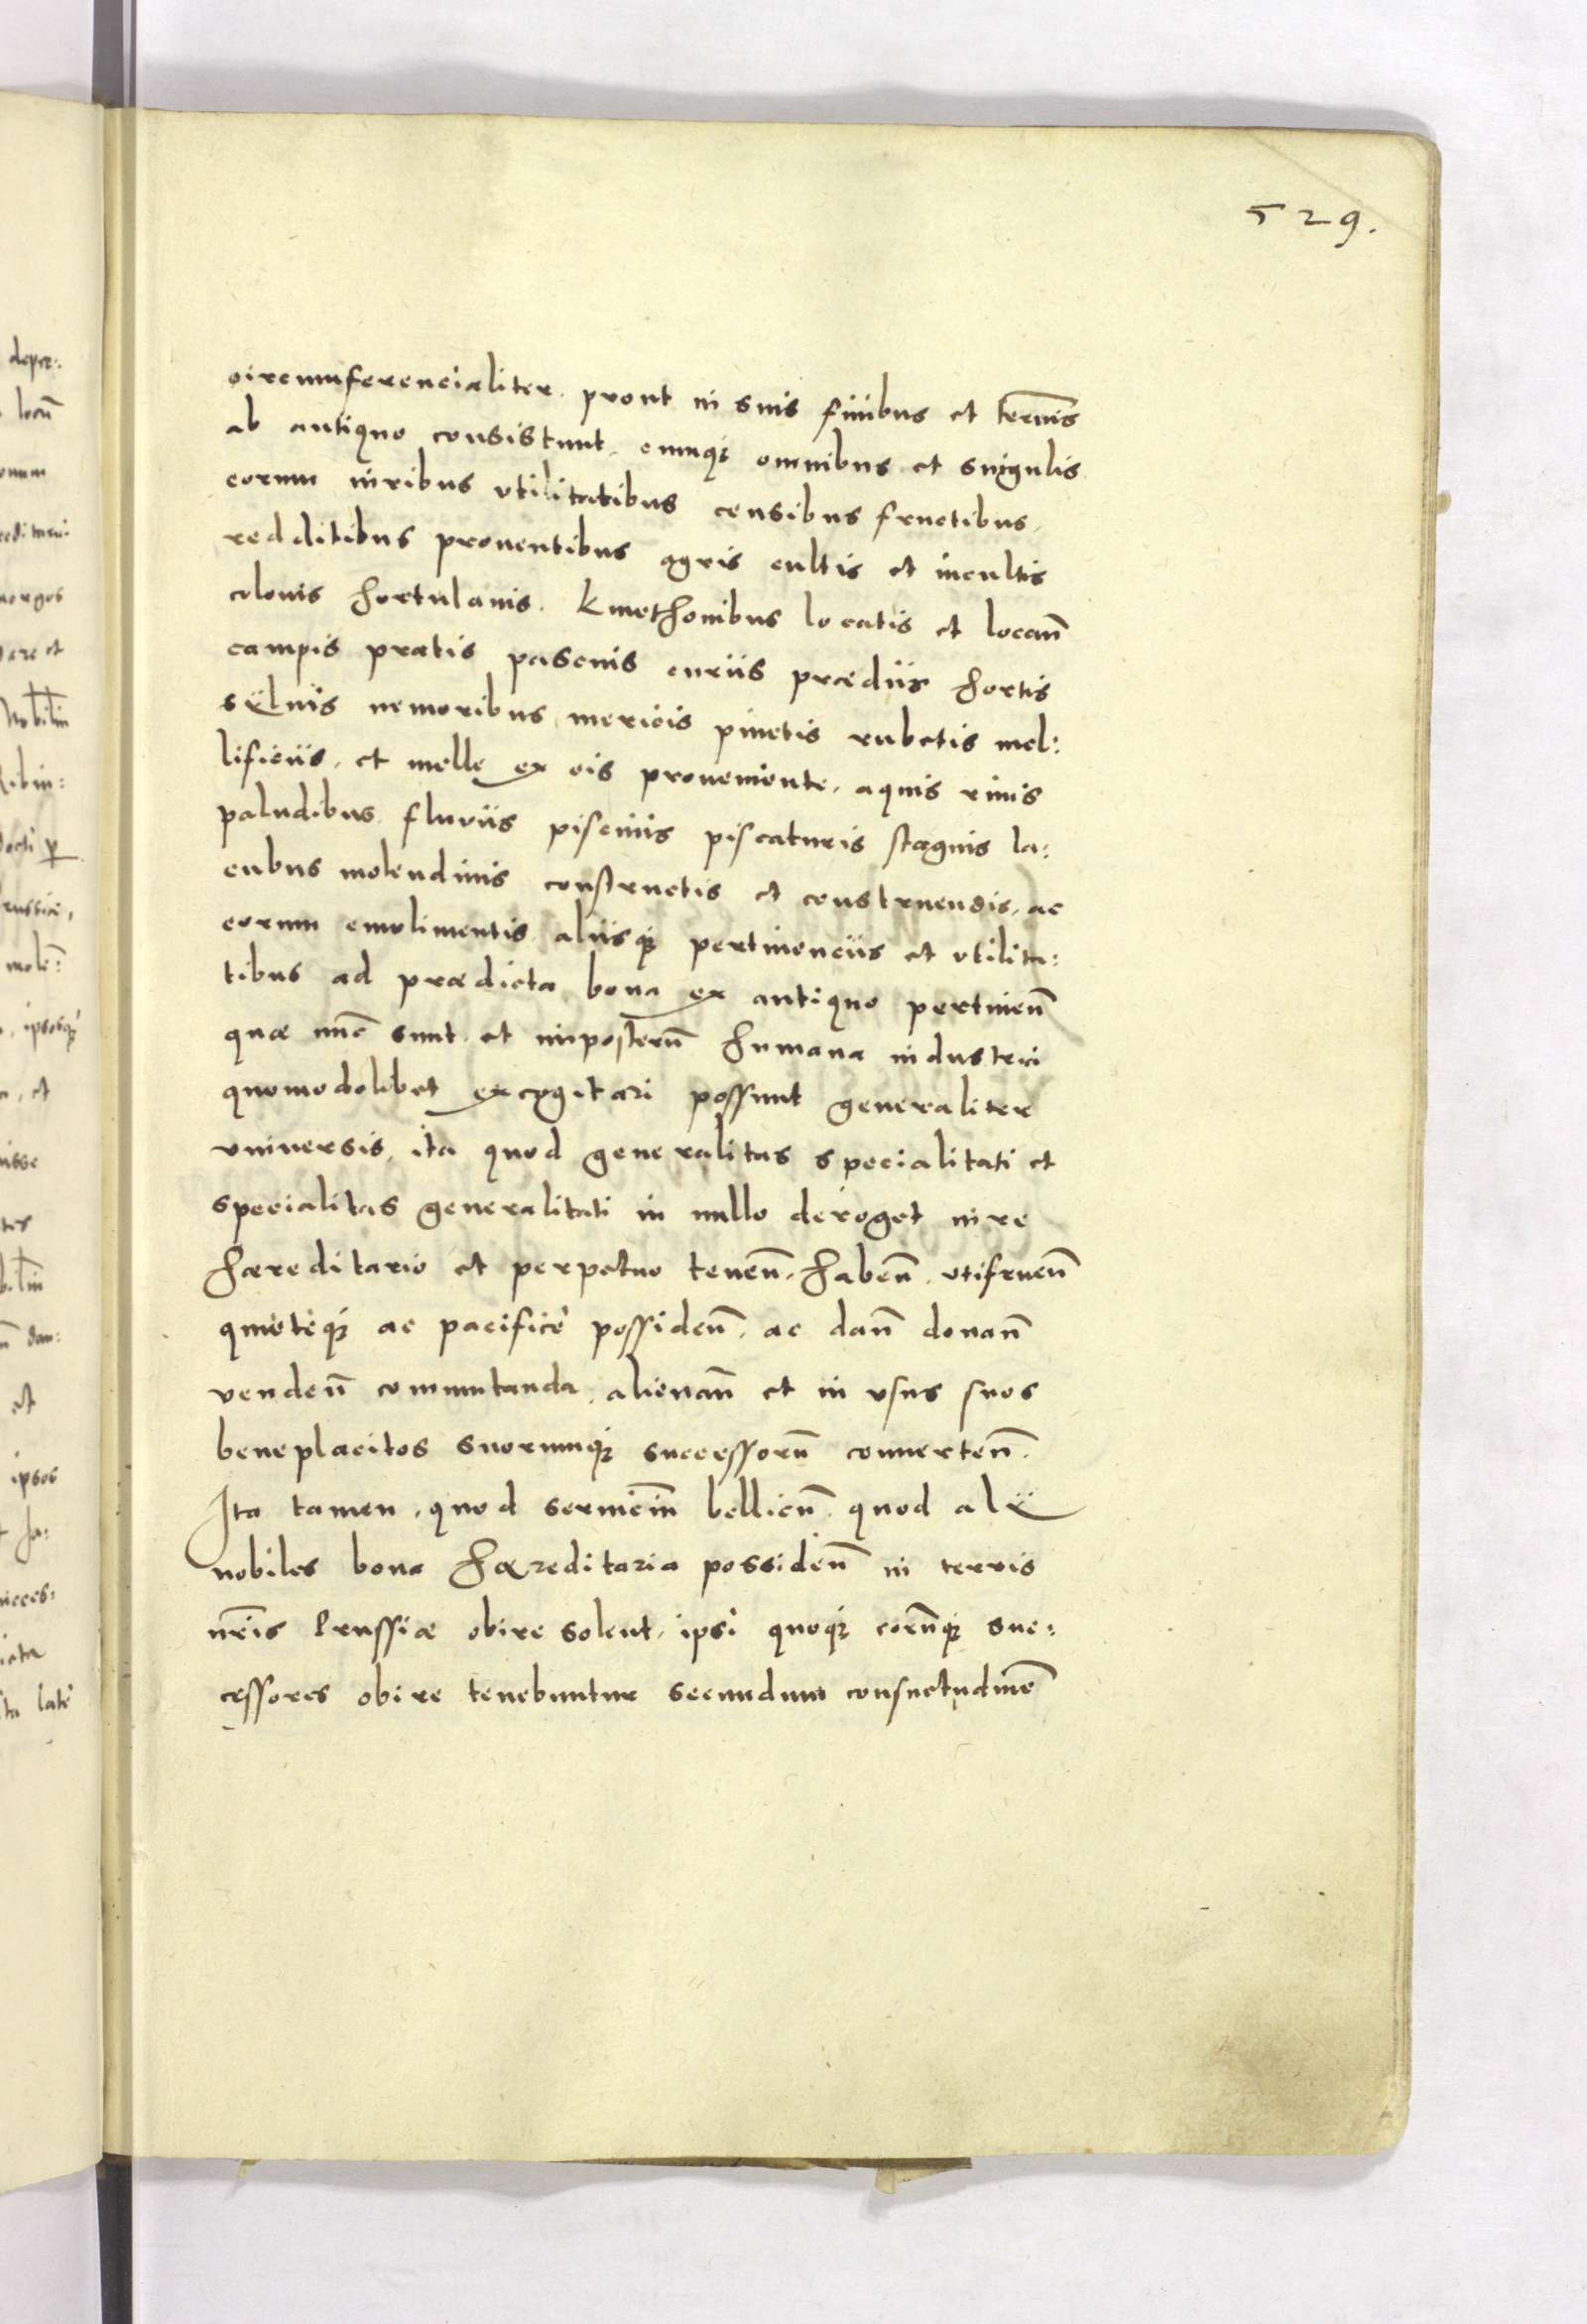 529.
circumferencialiter. prout in suis finibus et termĩs
ab antiquo consistunt. cumq3 omnibus et singulis
eorum iuribus vtilitatibus censibus fructibus.
redditibus prouentibus agris cultis et incultis
colonis hortulanis. Kmethonibus locatis et locañ
campis pratis pascuis curiis prædiis hortis
syluis nemoribus mericis pinetis rubetis mel:
lificiis. et melle ex eis proueniente. aquis riuis
paludibus. fluuiis piscinis piscaturis stagnis la:
cubus molendinis constructis et construendis. ac
eorum emolimentis. aliisq3 pertinenciis et vtilita:
tibus ad prædicta bona ex antiquo pertineñ
quæ nũc sunt. et imposterũ humana industria
quomodolibet excogitari possunt generaliter
vniuersis. ita quod generalitas specialitati et
specialitas generalitati in nullo deroget iure
hæreditario et perpetuo teneñ. habeñ. vtifrueñ
quieteq3 ac pacificè possideñ. ac dañ donañ
vendeñ commutanda. alienañ et in vsus suos
beneplacitos suorumq3 successorũ conuerteñ.
Ita tamen. quod seruiciũ bellicũ. quod alii
nobiles bona hæreditaria possideñ in terris
nr̃is Prussiæ obire solent. ipsi quoq3 eorũq3 suc:
cessores obire tenebuntur secundum consuetudinẽ
deper:
locũ
morgos
Nobiliũ
Ribin:
molẽ:
ipsosq3
et
isse
dan:
et
ipsos
ha:
late